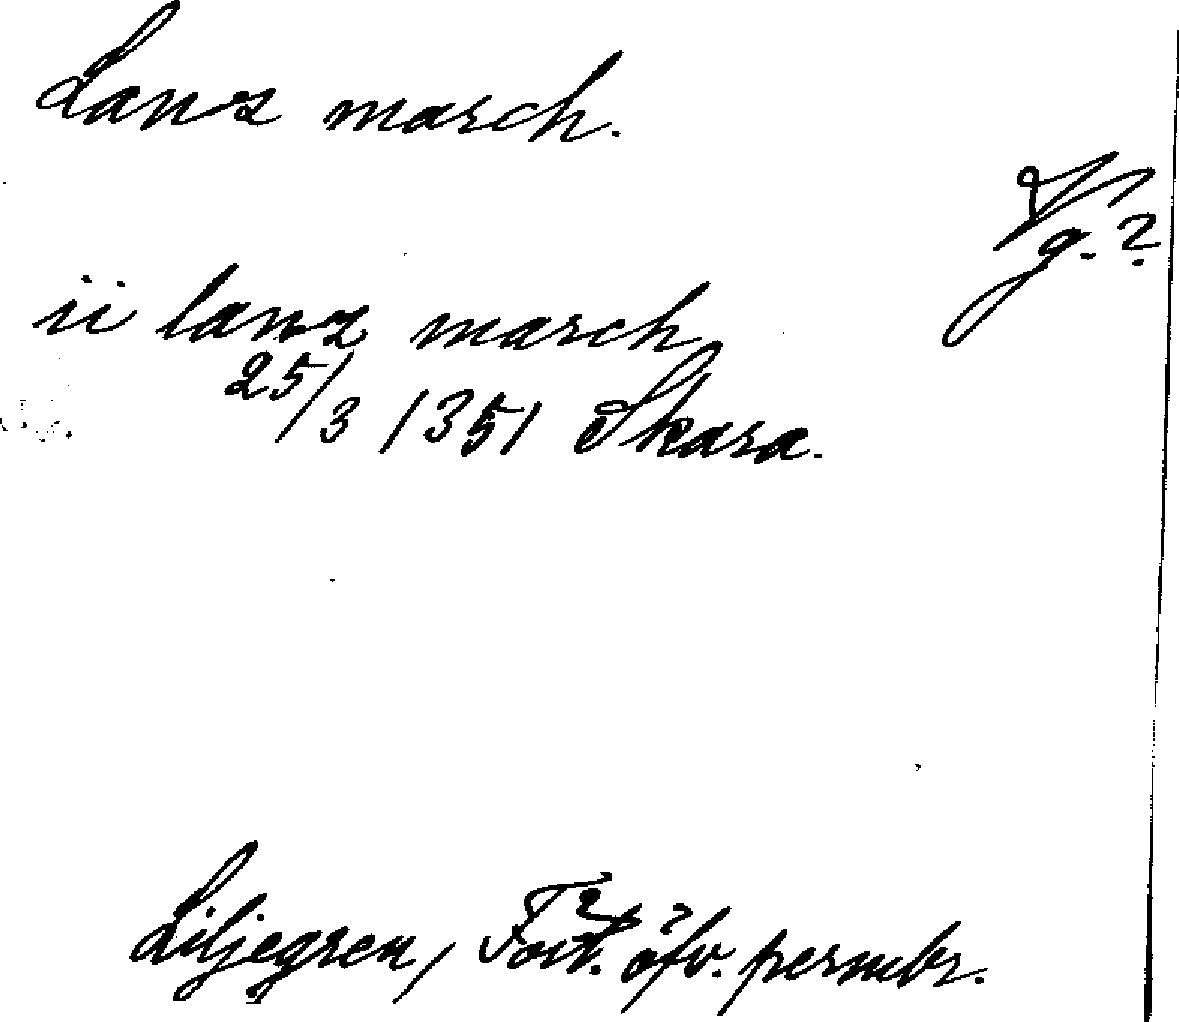 Lanz march.
Vg.?
ii lanz march
25/3 1351 Skara.
Liljegren, Fört. öfv. permbr.